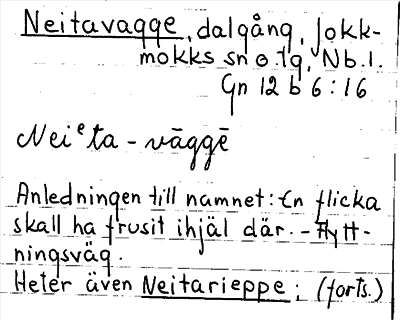 Neitavagge, dalgång, Jokk-
mokks sn o. tg, Nb.l.
Gn 12 b 6:16
Neiᵉta - vāggē
Anledningen till namnet: En flicka
skall ha frusit ihjäl där. - Flytt-
ningsväg.
Heter även Neitarieppe; (forts.)